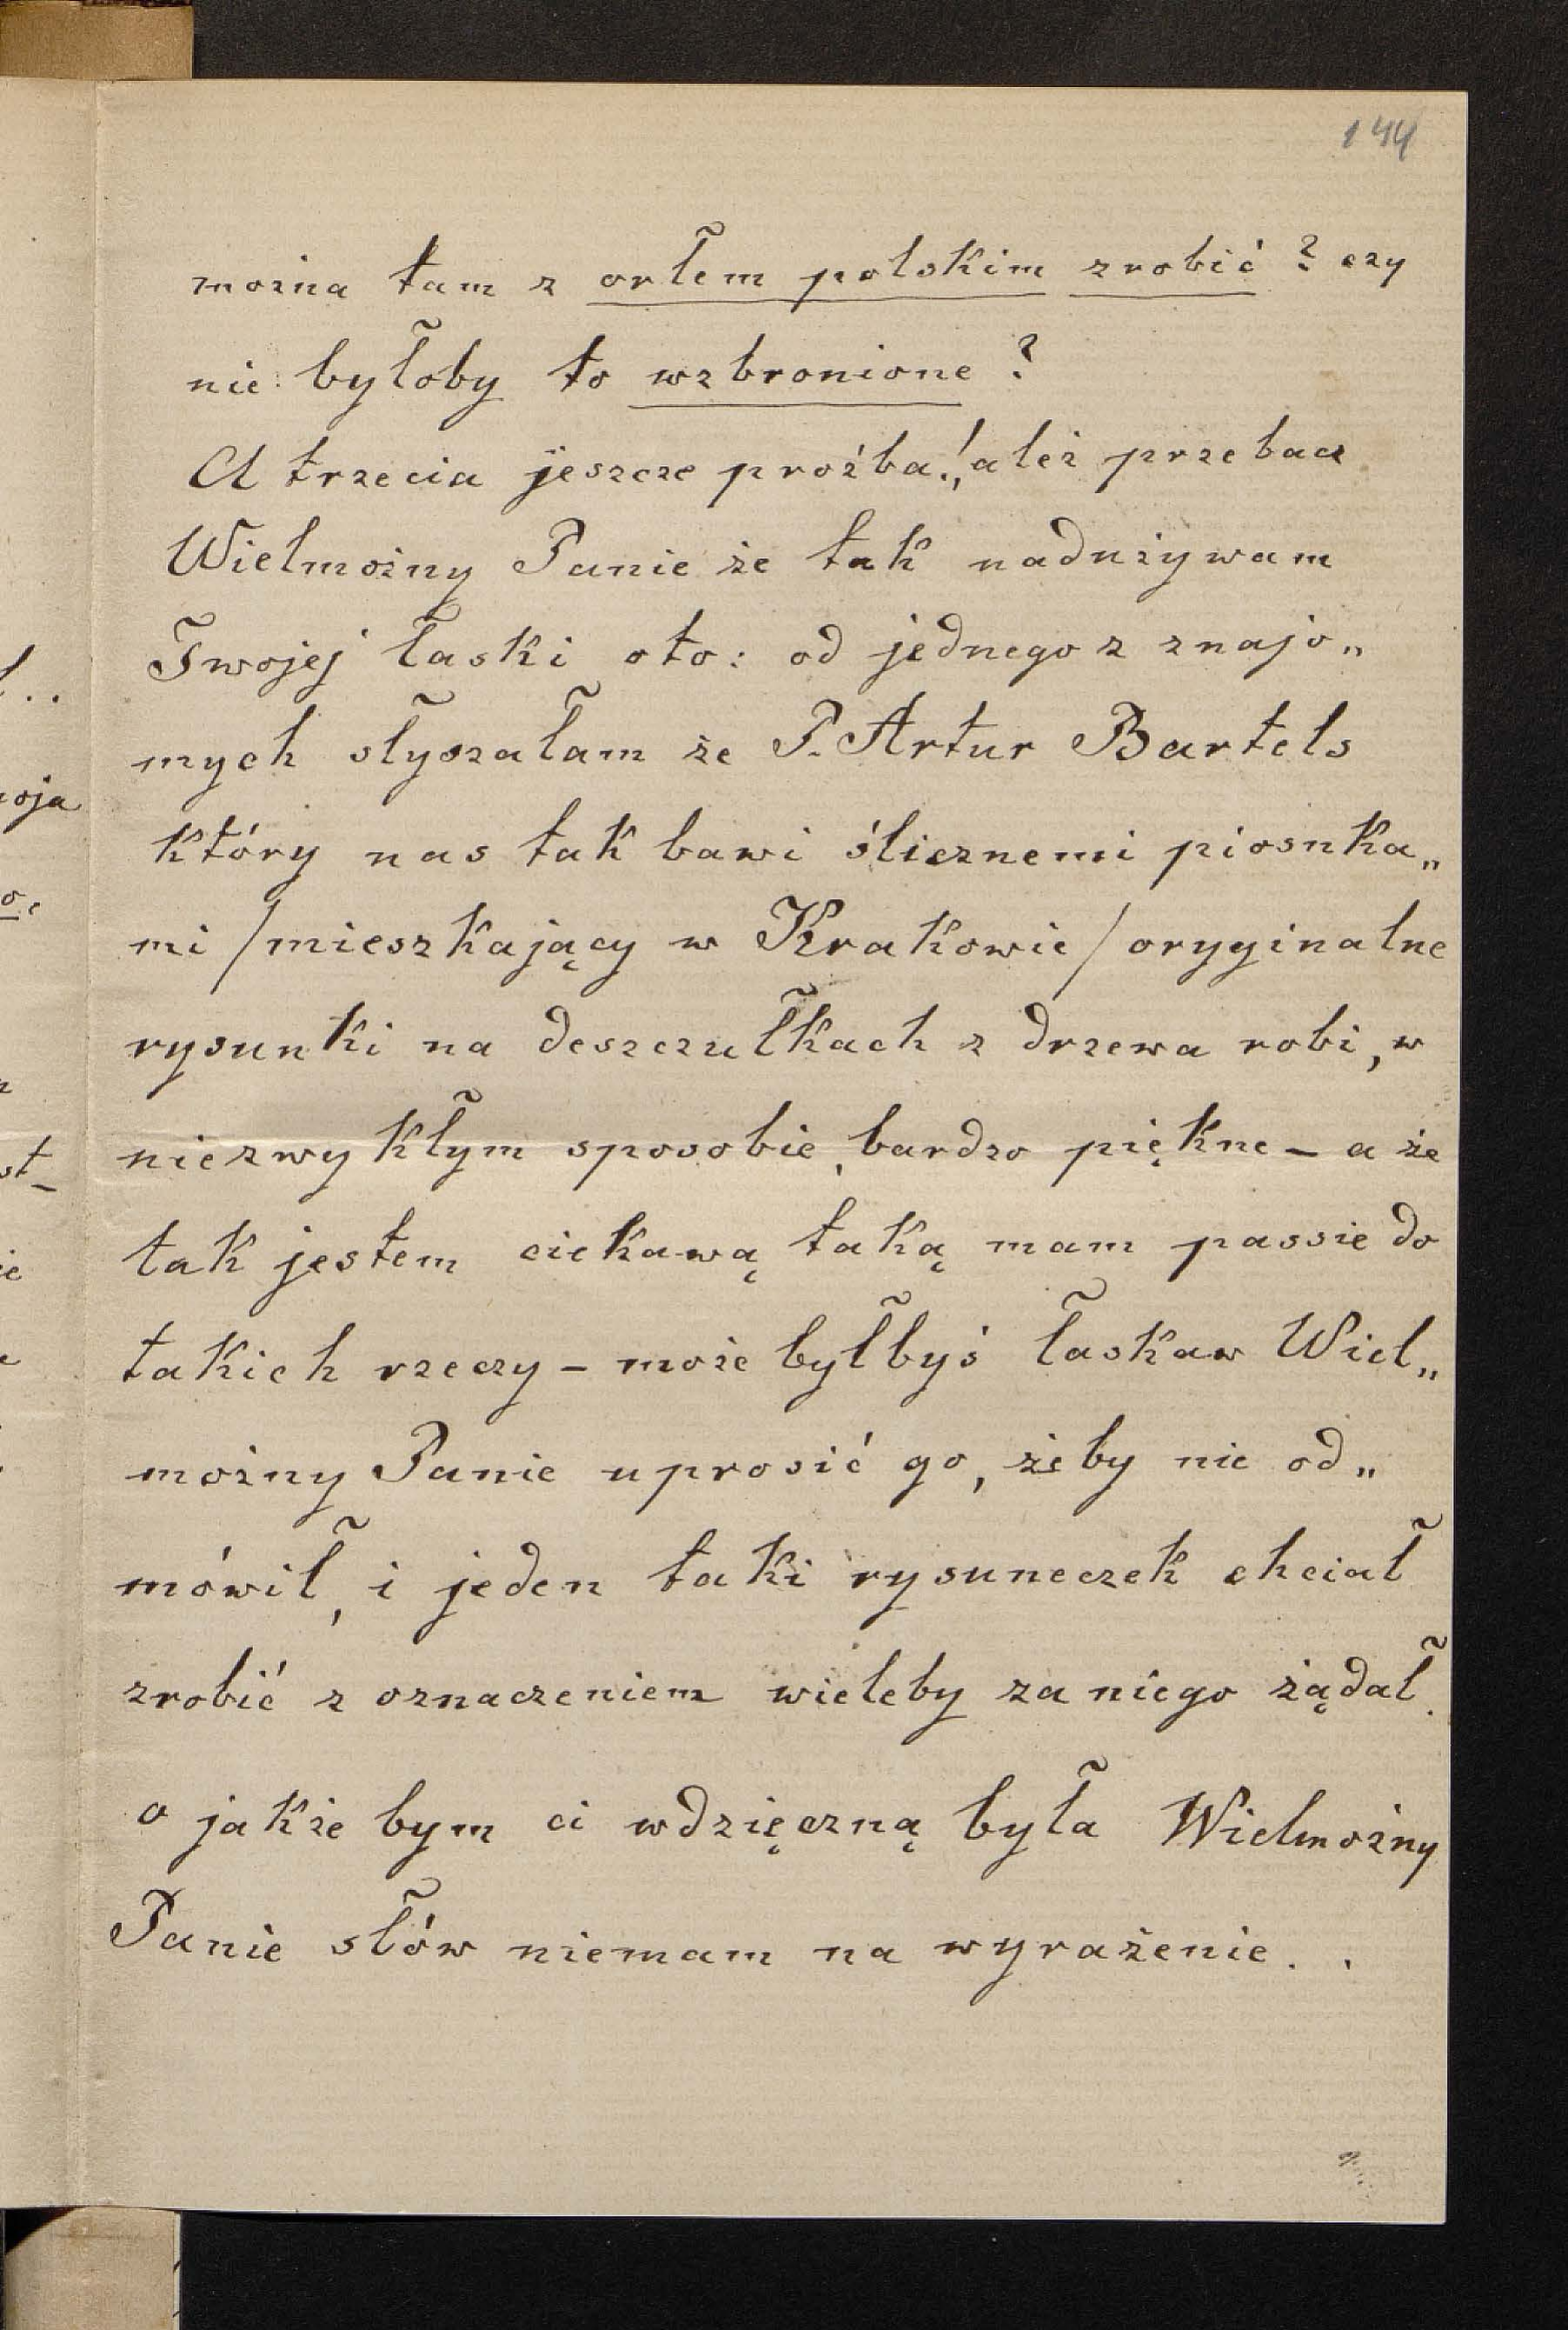 144
można tam z orłem polskim zrobić? czy
nie byłoby to wzbronione?
A trzecia jeszcze proźba!, ależ przebacz
Wielmożny Panie że tak nadużywam
Twojej łaski oto: od jednego z znajo„
mych słyszałam że P. Artur Bartels
który nas tak bawi ślicznemi piosnka„
mi /mieszkający w Krakowie/ oryginalne
rysunki na deszczułkach z drzewa robi, w
niezwykłym sposobie, bardzo piękne – a że
tak jestem ciekawą taką mam passie do
takich rzeczy – może byłbyś łaskaw Wiel„
możny Panie uprosić go, żeby nie od„
mówił, i jeden taki rysuneczek chciał
zrobić z oznaczeniem wieleby za niego żądał.
o jakże bym ci wdzięczną była Wielmożny
Panie słów niemam na wyrażenie. .